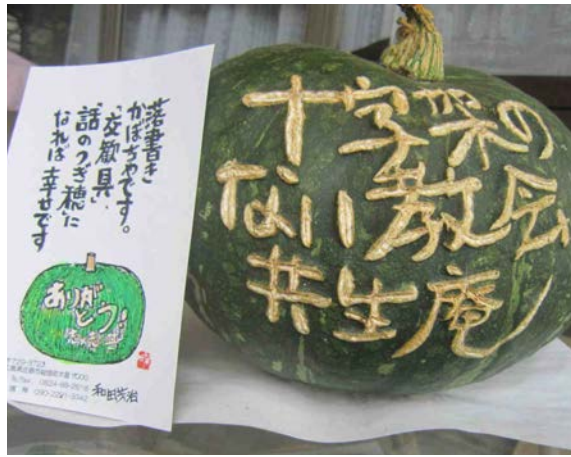 落書き
かぼちゃです。
「交歓具」・
「話のつぎ穂」に
なれば 幸せです
ありが
とう!
和田芳治
十字架の
ない教会
共生庵